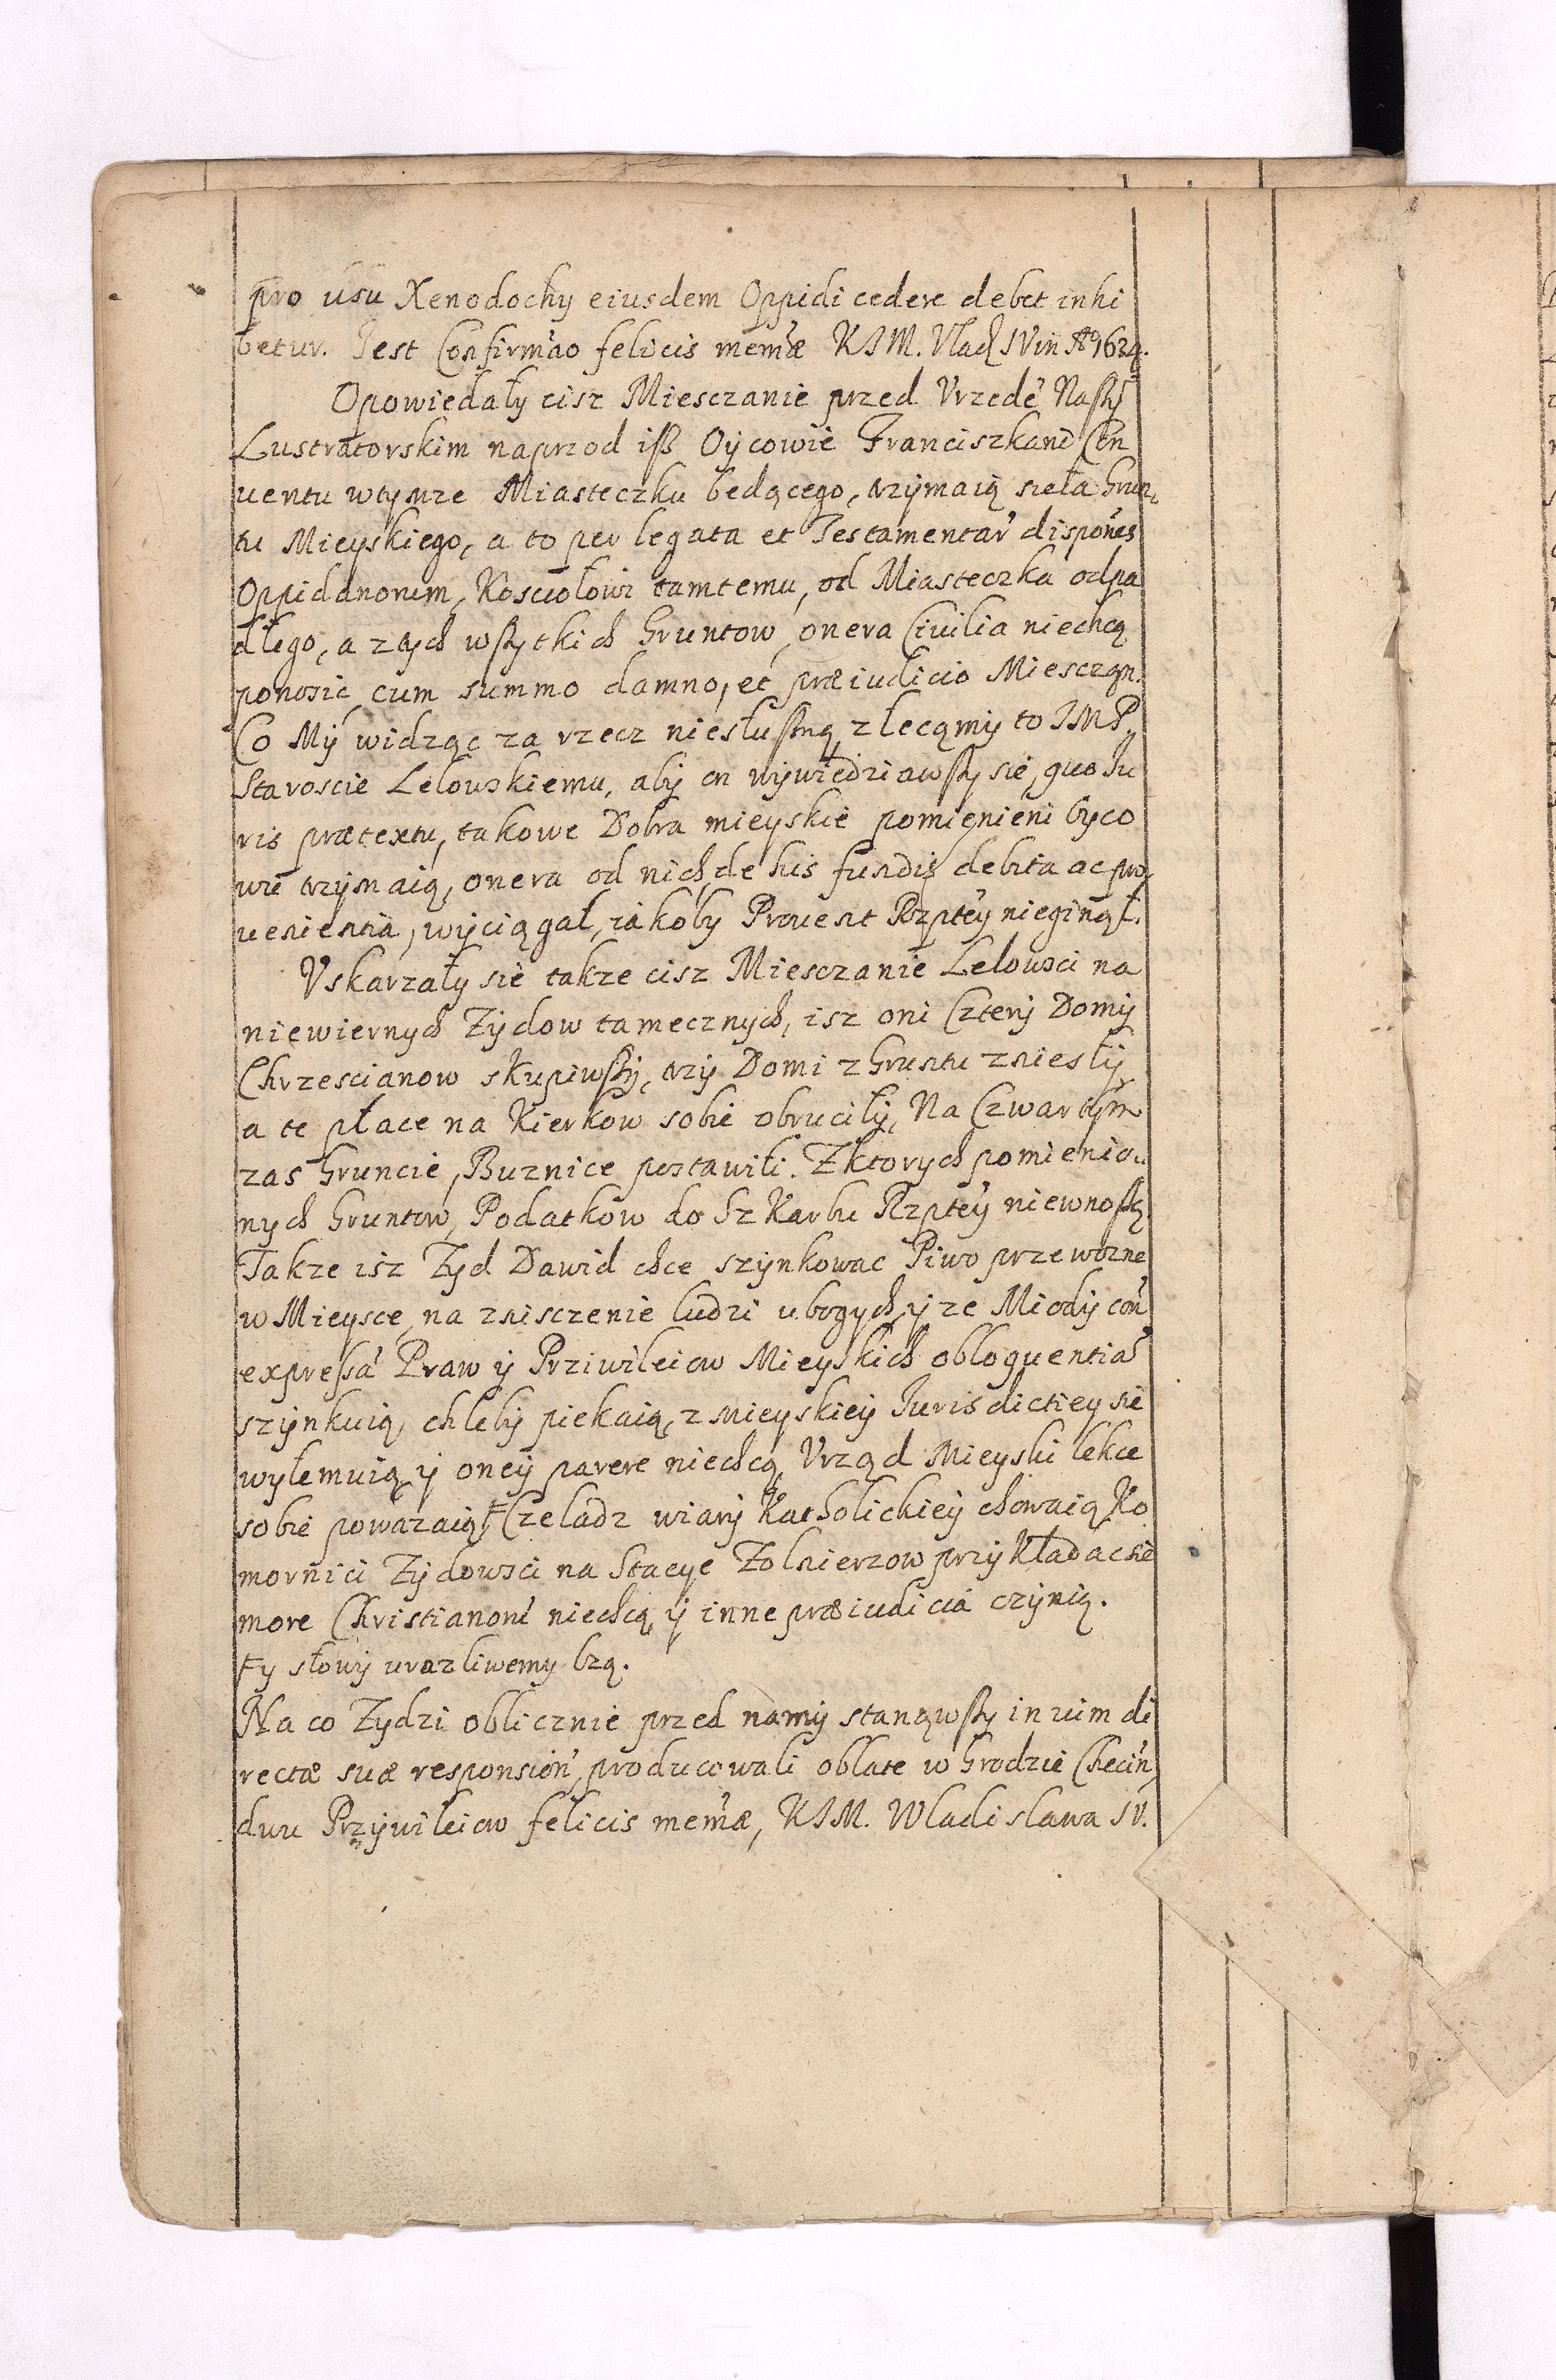 pro usu Xenodochy eiusdem Oppidi cedere debet inhi
betur. Jest Confirmão felicis memæ KJM. Vlad IV in A̅o 1634.
Opowiedały cisz Miesczanie przed Vrzedē Naszȳ
Lustratorskim naprzod iß Oycowie Franciszkani Con
uentu wtymze Miasteczku będącego, trzymaią sieła Grun„
tu Mieyskiego, a to per legata et Testamentar̄ disponēs
Oppidanorum, Kosciołowi tamtemu, od Miasteczka odpa
dłego, a ztych wszytkich Gruntow, onera Ciuilia niechcą
ponosic cum summo damno, et præiudicio Miesczan.
Co My widząc za rzecz niesłuszną, zlecamy to JMP„
Staroscie Lelowskiemu, aby on wywiedziawszy się, quo Ju
ris prætextu, takowe Dobra mieyskie pomienieni Oyco
wie trzymaią, onera od nich de his fundis debita ac pro„
uenientia, wyciągał, iakoby Prouent Rzptey nieginął.
Vskarzały się takze cisz Miesczanie Lelowsci na
niewiernych Zydow tamecznych, isz oni Cztery Domy
Chrzescianow skupiwszy, trzy Domi z Gruntu zniesły
a te płace na Kierkow sobie obrucily, Na Czwartym
zas Gruncie, Buznice postawili. Zktorych pomienio„
nych Gruntow, Podatkow do Szkarbu Rzptey niewnoszą
Takze isz Zyd Dawid chce szynkowac Piwo przewozne
w Mieysce, na znisczenie ludzi ubogych, y ze Miody coñ
expressã Praw y Przivileiow Mieyskich obloquentiã
szynkuią, chleby piekaią, z mieyskiey Jurisdictiey się
wyłemuią, y oney parere niechcą, Vrząd Mieyski lekce
sobie powazaią, Ŧ Czeladz wiary Katholickiey chowaią, Ko
mornici Zydowsci na Stacye Zolnierzow przykładac się
more Christianorũ niechcą, y inne præiudicia czynią.
Ŧ y słowy urazliwemy lzą.
Na co Zydzi oblicznie przed namy stanąwszy in vim di
rectæ suæ responsioñ, producowali oblate w Grodzie Checiñ,
dwu Przywileiow felicis memæ, KJM. Wladislawa IV.